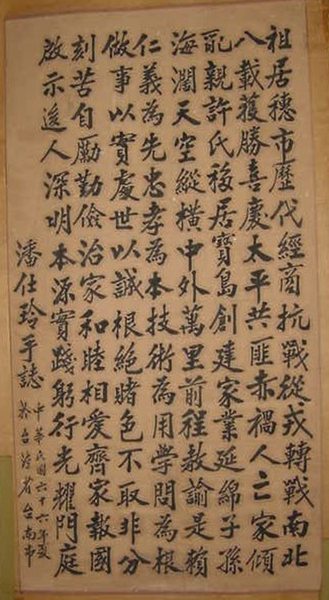 祖居穗市歷代經商抗戰從戎轉戰南北
八載獲勝喜慶太平共匪赤禍人亡家傾
亂親許氏移居寶島創建家業延綿子孫
海濶天空縱橫中外萬里前程教諭是賴
仁義為先忠孝為本技術為用學問為根
做事以實處世以誠根絕賭色不取非分
刻苦自勵勤儉治家和睦相愛齊家報國
啟示後人深明本源實踐躬行光耀門庭
潘仕玲手誌
中華民國六十六年
台南市